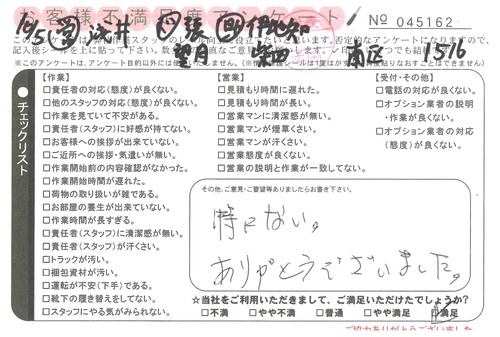 お客様不満足度アンケート No 045162
※このアンケートは、アンケート目的以外には使いません。
チェックリスト
【作業】
□責任者の対応(態度)が良くない。
□他のスタッフの対応(態度)が良くない。
□作業を見ていて不安がある。
□責任者(スタッフ)に好感が持てない。
□お客様への挨拶が出来ていない。
□ご近所への挨拶・気遣いが無い。
□作業開始前の内容確認がなかった。
□作業開始時間が遅れた。
□荷物の取り扱いが雑である。
□お部屋の養生が出来ていない。
□作業時間が長すぎる。
□責任者(スタッフ)に清潔感が無い。
□責任者(スタッフ)が汗くさい。
□トラックが汚い。
□梱包資材が汚い。
□運転が不安(下手)である。
□靴下の履き替えをしてない。
□スタッフにやる気がみられない。
【営業】
□見積もり時間に遅れた。
□見積もり時間が長い。
□営業マンに清潔感が無い。
□営業マンが煙草くさい。
□営業マンが汗くさい。
□営業態度が良くない。
□営業の説明と作業が一致してない。
【受付・その他】
□電話の対応が良くない。
□オプション業者の説明
・作業が良くない。
□オプション業者の対応
(態度)が良くない。
その他、ご意見・ご要望等ありましたらお書き下さい。
特にない。
ありがとうございました。
☆当社をご利用いただきまして、ご満足いただけたでしょうか?
□不満 □やや不満 □普通 □やや満足 □満足
ご協力ありがとうございました